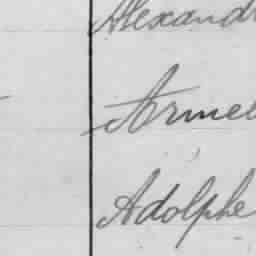 Alexand
Armel
Adolphe